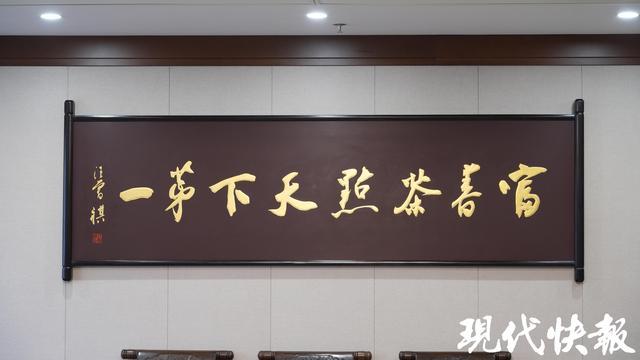 富春茶點天下第一
汪曾祺
現代快報